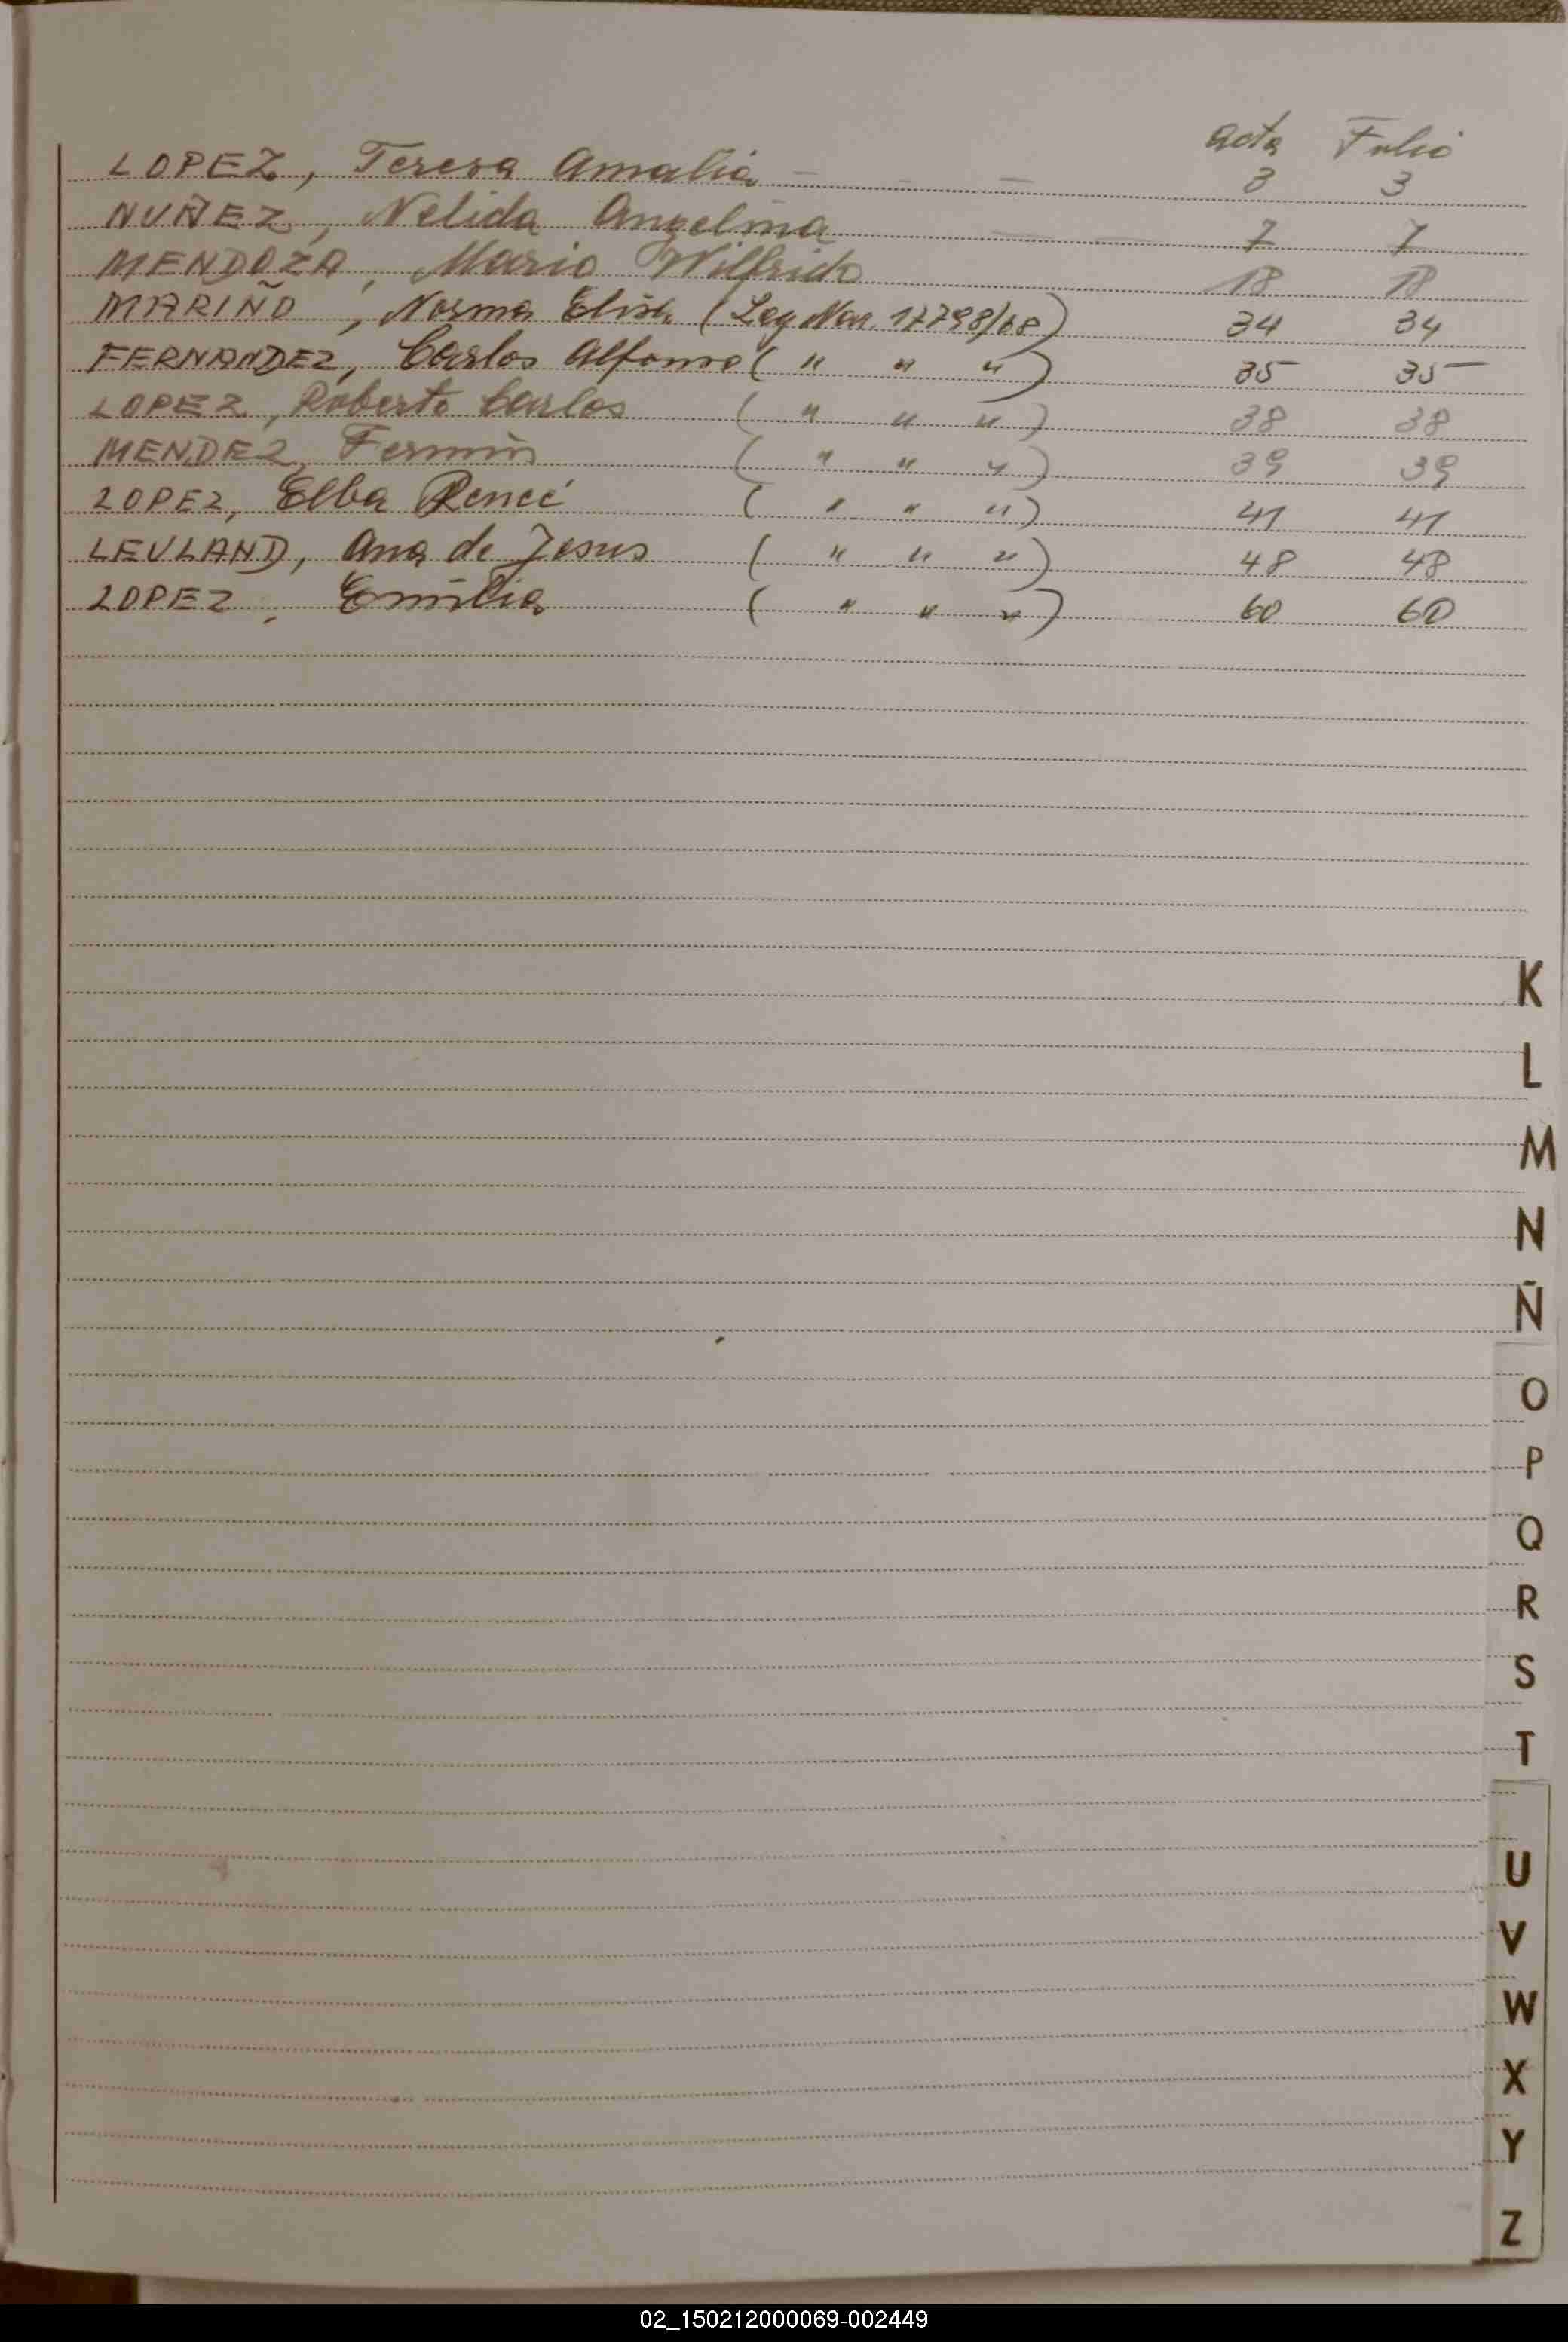 Acta Folio
LOPEZ, Teresa Amalia — — — 3 3
NUÑEZ, Nelida Angelina — — 7 7
MENDOZA, Mario Wilfrido 18 18
MARIÑO, Norma Elisa (Ley Nac. 17798/68) 34 34
FERNANDEZ, Carlos Alfonso ( " " " ) 35 35
LOPEZ, Roberto Carlos ( " " " ) 38 38
MENDEZ, Fermin ( " " " ) 39 39
LOPEZ, Elba Reneé ( " " " ) 41 41
LEULAND, Ana de Jesus ( " " " ) 48 48
LOPEZ, Emilia ( " " " ) 60 60
K
L
M
N
Ñ
O
P
Q
R
S
T
U
V
W
X
Y
Z
02_150212000069-002449